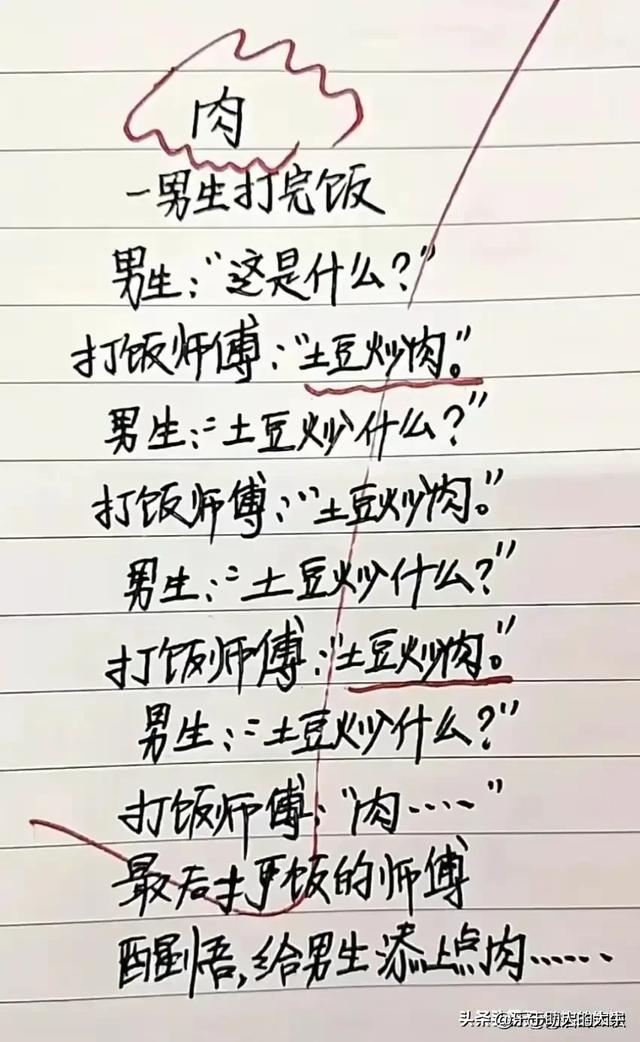 肉
一男生打完饭
男生:“这是什么?”
打饭师傅:“土豆炒肉。”
男生:“土豆炒什么?”
打饭师傅:“土豆炒肉。”
男生:“土豆炒什么?”
打饭师傅:“土豆炒肉。”
男生:“土豆炒什么?”
打饭师傅:“肉……”
最后打饭的师傅
醒悟,给男生添上点肉……